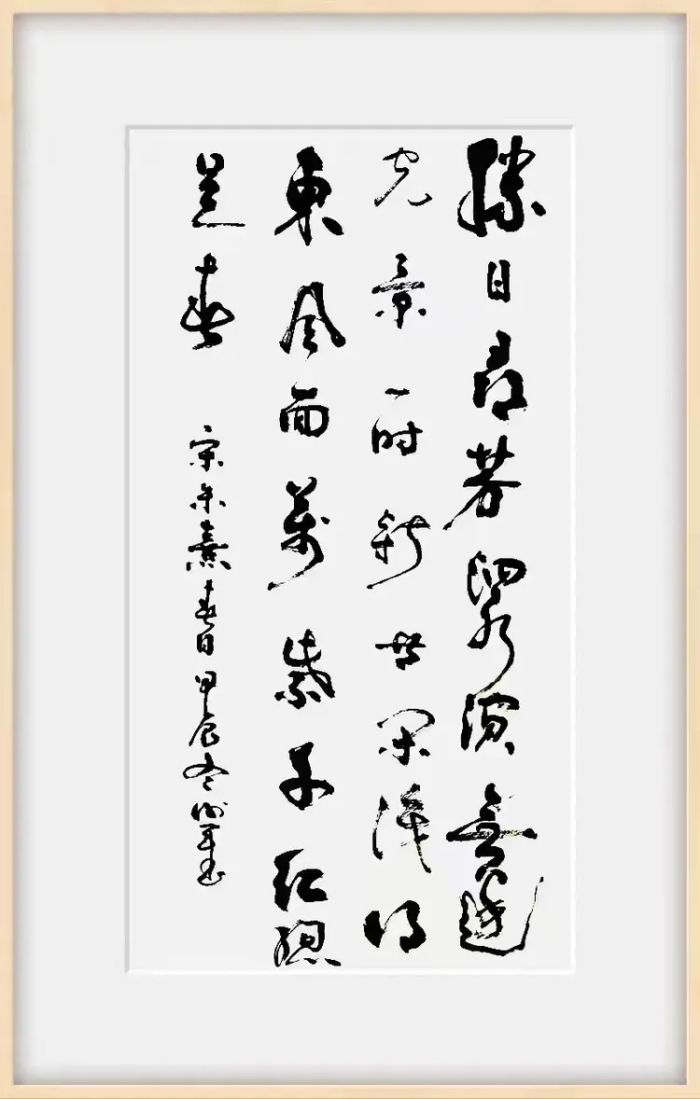 勝日尋芳泗水濱無邊
光景一時新等閒識得
東風面萬紫千紅總
是春 宋朱熹春日甲辰冬